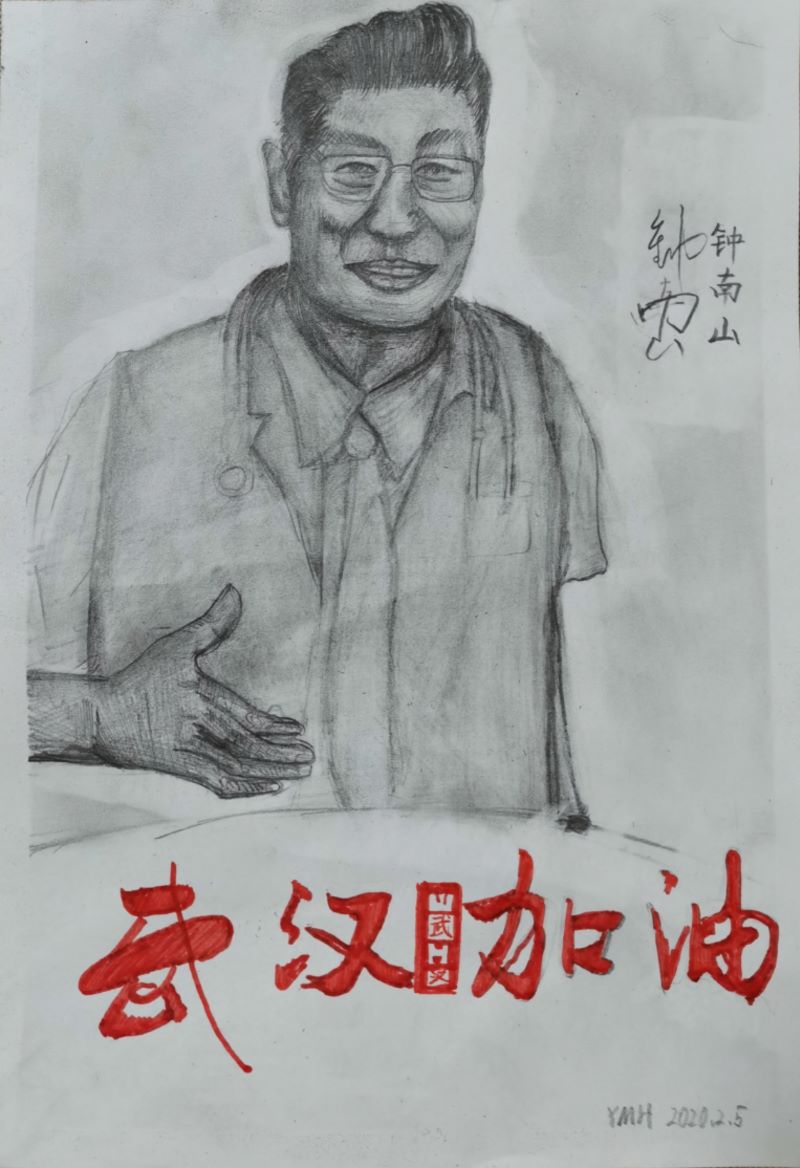 钟南山
钟南山
武汉加油
武汉
YMH 2020.2.5